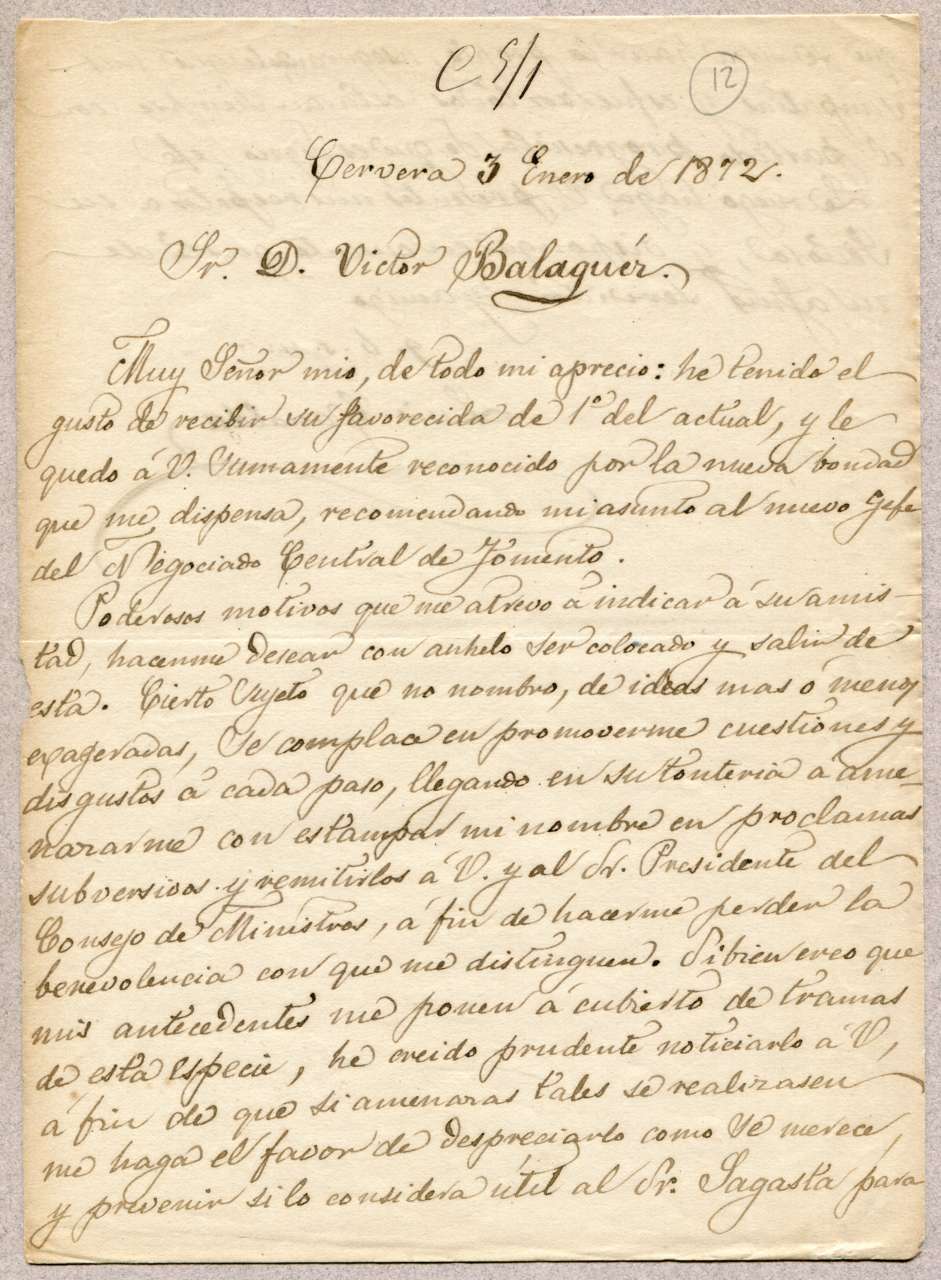 C 5/1
12
Cervera 3 Enero de 1872.
Sr. D. Victor Balaguér.
Muy Señor mio, de todo mi aprecio: he tenido el
gusto de recibir su favorecida de 1º del actual, y le
quedo á V. sumamente reconocido por la nueva bondad
que me dispensa, recomendando mi asunto al nuevo Gefe
del Negociado Central de Fomento.
Poderosos motivos que me atrevo á indicar á su amis-
tad, hacenme desear con anhelo ser colocado y salir de
esta. Cierto sujeto que no nombro, de ideas mas ó menos
exageradas, se complace en promoverme cuestiones y
disgustos á cada paso, llegando en su tonteria á ame-
nazarme con estampar mi nombre en proclamas
subversivos y remitirlos á V. y al Sr. Presidente del
Consejo de Ministros, á fin de hacerme perder la
benevolencia con que me distinguen. Si bien creo que
mis antecedentes me ponen á cubierto de tramas
de esta especie, he creido prudente noticiarlo á V,
á fin de que si amenazas tales se realizasen
me haga el favor de despreciarlo como se merece,
y prevenir si lo considera útil al Sr. Sagasta para